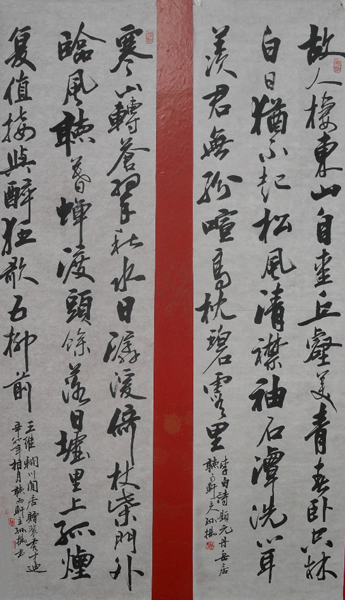 故人棲東山自愛丘壑美青春卧空林
白日猶不起松風清襟袖石潭洗心耳
羨君無紛喧高枕碧霞里
李白詩題元丹丘山居
寒山轉蒼翠秋水日潺湲倚杖柴門外
臨風聽暮蟬渡頭餘落日墟里上孤煙
复值接輿醉狂歌五柳前
王維輞川閒居贈裴秀才迪